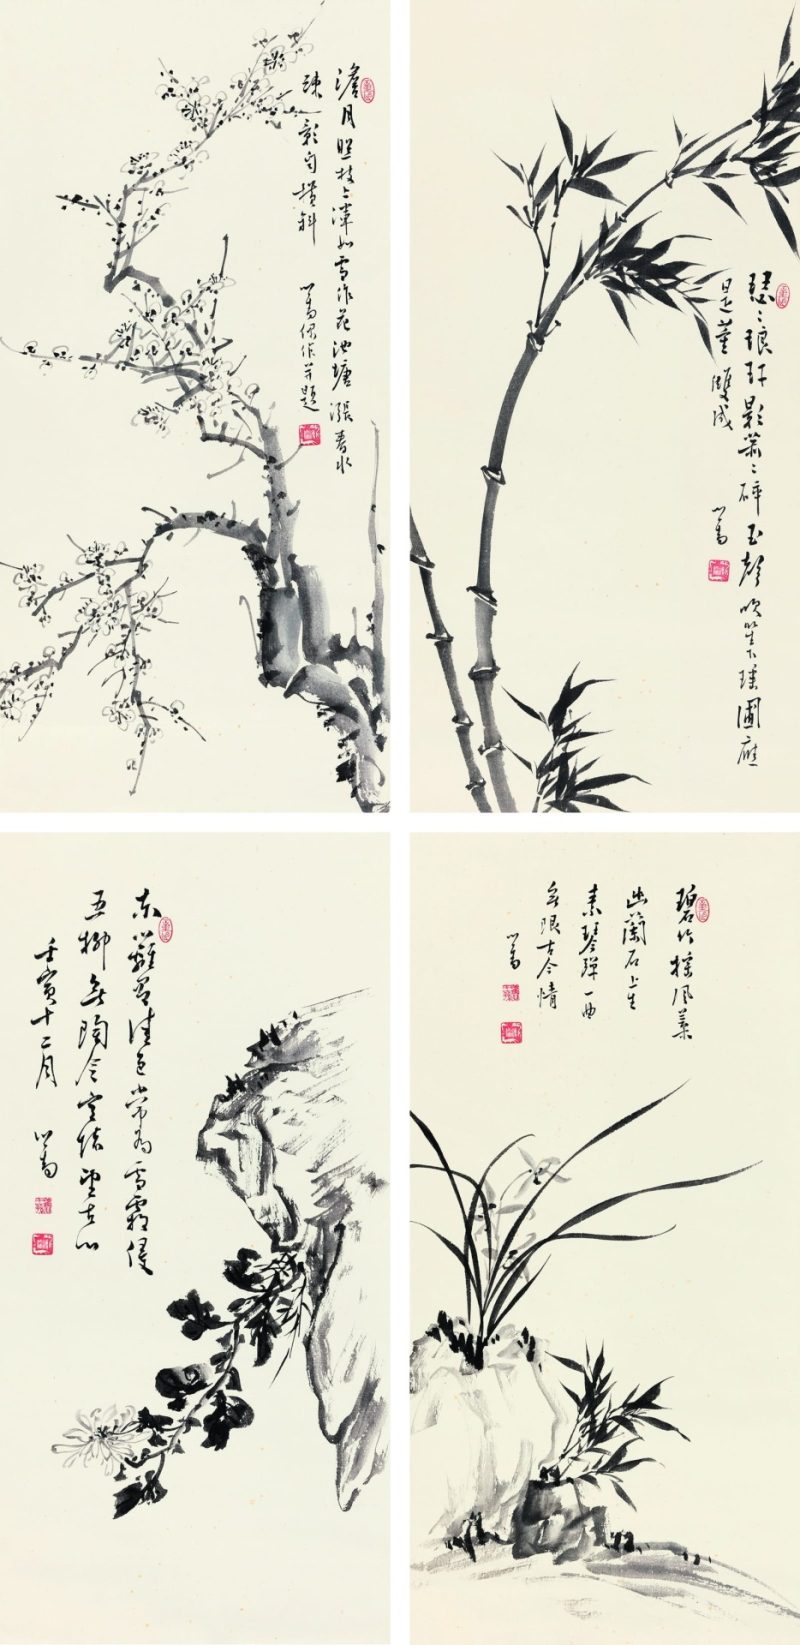 澹月照枝上渾如雪作花池塘漲春水
疎影自橫斜
心畬偶作并題
瑟〻琅玕影蕭〻碎玉聲吹笙下瑤圃應
是董雙成
心畬
東籬留佳色常為雪霜侵
五柳無陶令空望古心
壬寅十二月 心畬
碧竹搖風葉
幽蘭石上生
素琴彈一曲
無限古今情
心畬